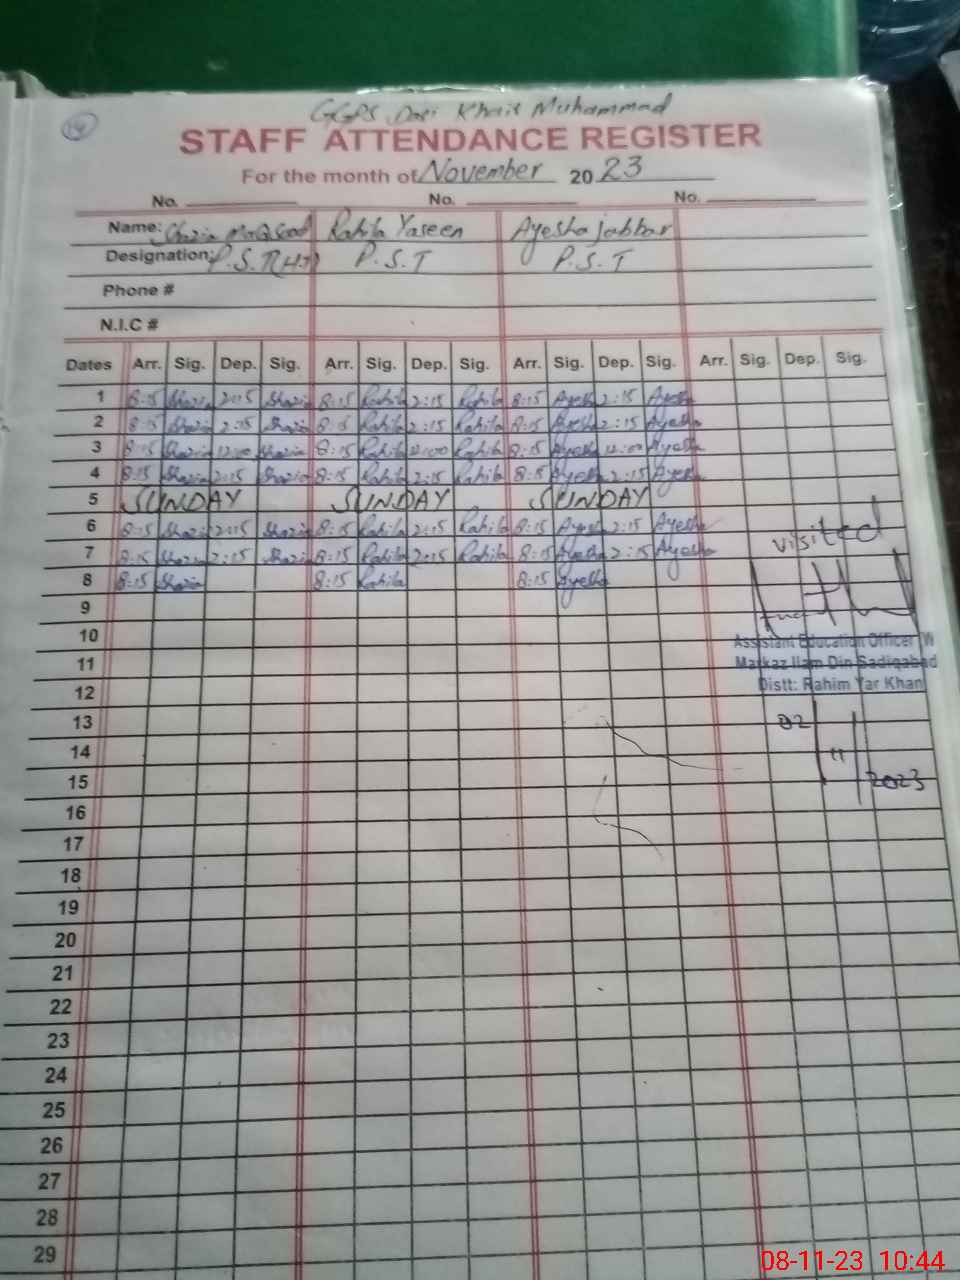 14
GGPS Dari Khair Muhammad
STAFF ATTENDANCE REGISTER
For the month of November 2023
No. No. No.
Name: Shazia Maqsood Rahila Yaseen Ayesha jabbar
Designation: P.S.T(H.T) P.S.T P.S.T
Phone #
N.I.C #
Dates Arr. Sig. Dep. Sig. Arr. Sig. Dep. Sig. Arr. Sig. Dep. Sig. Arr. Sig. Dep. Sig.
1 8:15 Shazia 2:15 Shazia 8:15 Rahila 2:15 Rahila 8:15 Ayesha 2:15 Ayesha
2 8:15 Shazia 2:15 Shazia 8:15 Rahila 2:15 Rahila 8:15 Ayesha 2:15 Ayesha
3 8:15 Shazia 12:00 Shazia 8:15 Rahila 12:00 Rahila 8:15 Ayesha 12:00 Ayesha
4 8:15 Shazia 2:15 Shazia 8:15 Rahila 2:15 Rahila 8:15 Ayesha 2:15 Ayesha
5 SUNDAY SUNDAY SUNDAY
6 8:15 Shazia 2:15 Shazia 8:15 Rahila 2:15 Rahila 8:15 Ayesha 2:15 Ayesha
7 8:15 Shazia 2:15 Shazia 8:15 Rahila 2:15 Rahila 8:15 Ayesha 2:15 Ayesha
visited
8 8:15 Shazia 8:15 Rahila 8:15 Ayesha
9
10
Assistant Education Officer W
11
Markaz Ilam Din Sadiqabad
12
Distt: Rahim Yar Khan
13
02
14
11
15
2023
16
17
18
19
20
21
22
23
24
25
26
27
28
29
08-11-23 10:44